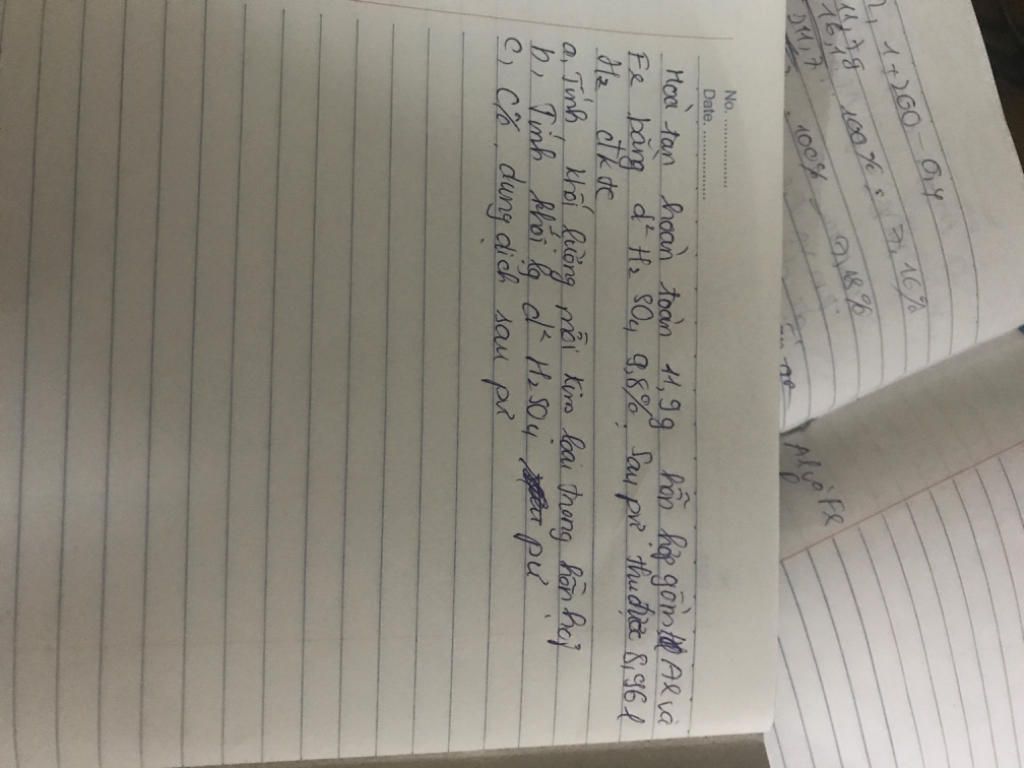 No. ..............
Date. ..............
Hoà tàn hoàn toàn 11,9g hỗn hợp gồm Al và
Fe bằng d² H₂SO₄ 9,8%. Sau pư thu được 8,96 l
H₂ đktc
a, Tính khối lượng mỗi kim loại trong hỗn hợp
b, Tính khối lg d² H₂SO₄ pư
c, C% dung dịch sau pư
1+200-0,4
11,7g 100% = 7,16%
16,1
100%